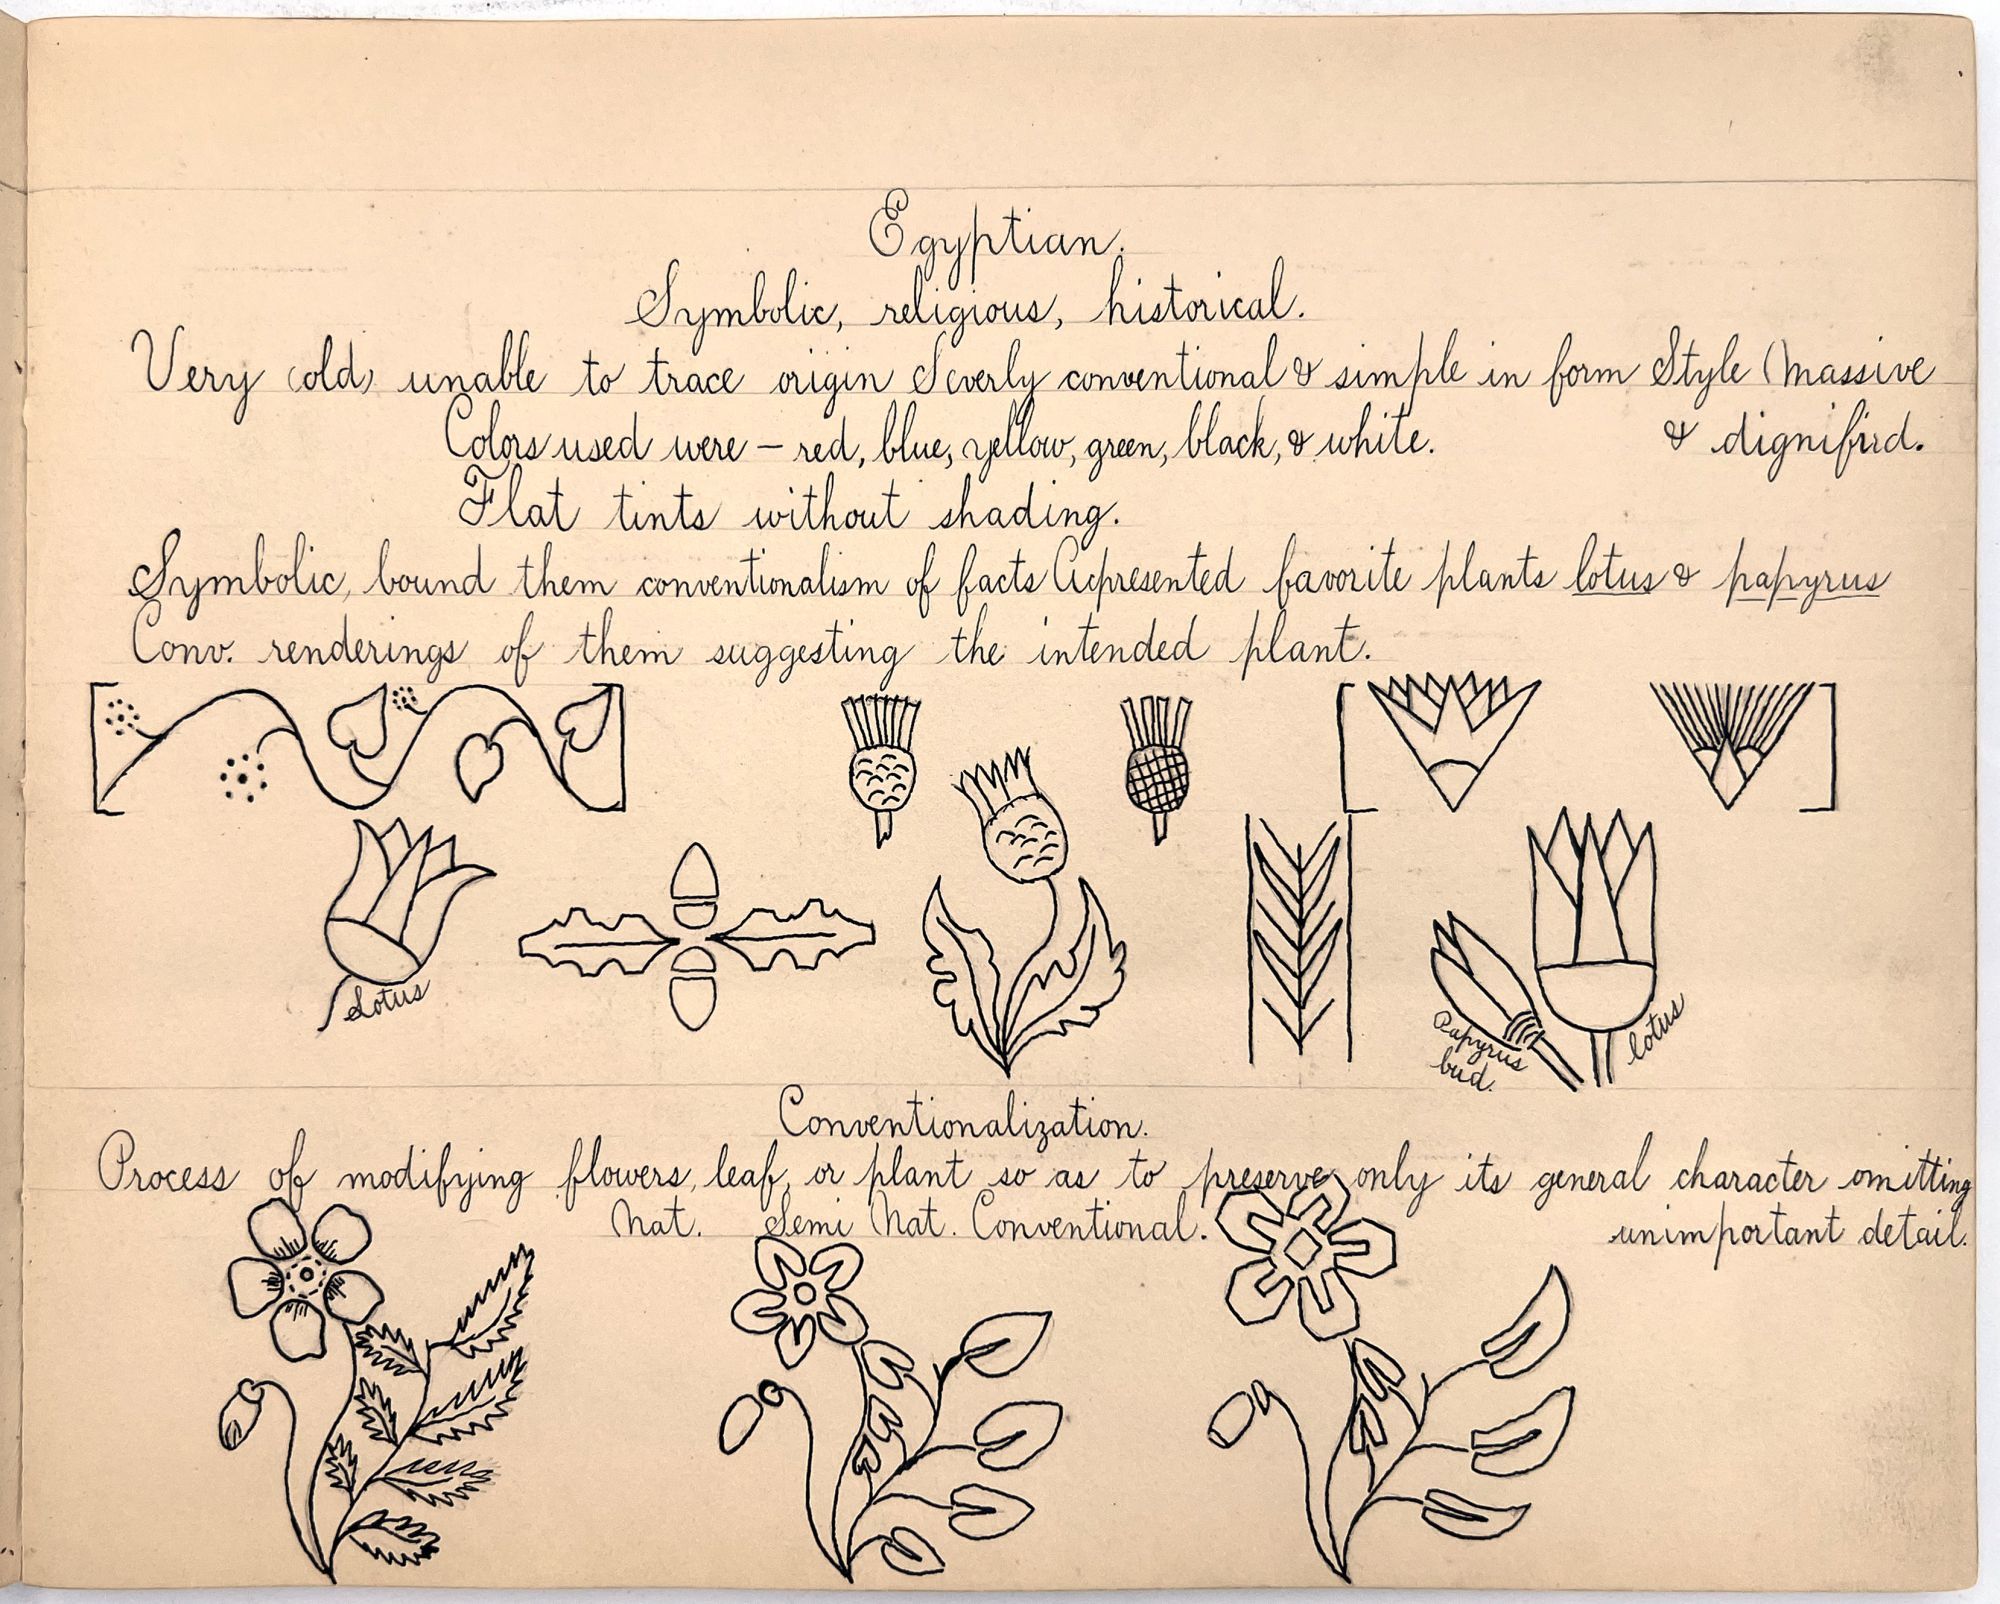 Egyptian.
Symbolic, religious, historical.
Very (old) unable to trace origin Severly conventional & simple in form Style (Massive
Colors used were – red, blue, yellow, green, black, & white. & dignifird.
Flat tints without shading.
Symbolic, bound them conventionalism of facts represented favorite plants lotus & papyrus
Conv. renderings of them suggesting the intended plant.
Lotus
Papyrus
bud.
lotus
Conventionalization.
Process of modifying flowers, leaf, or plant so as to preserve only its general character omitting
Nat. Semi Nat. Conventional. unimportant detail.